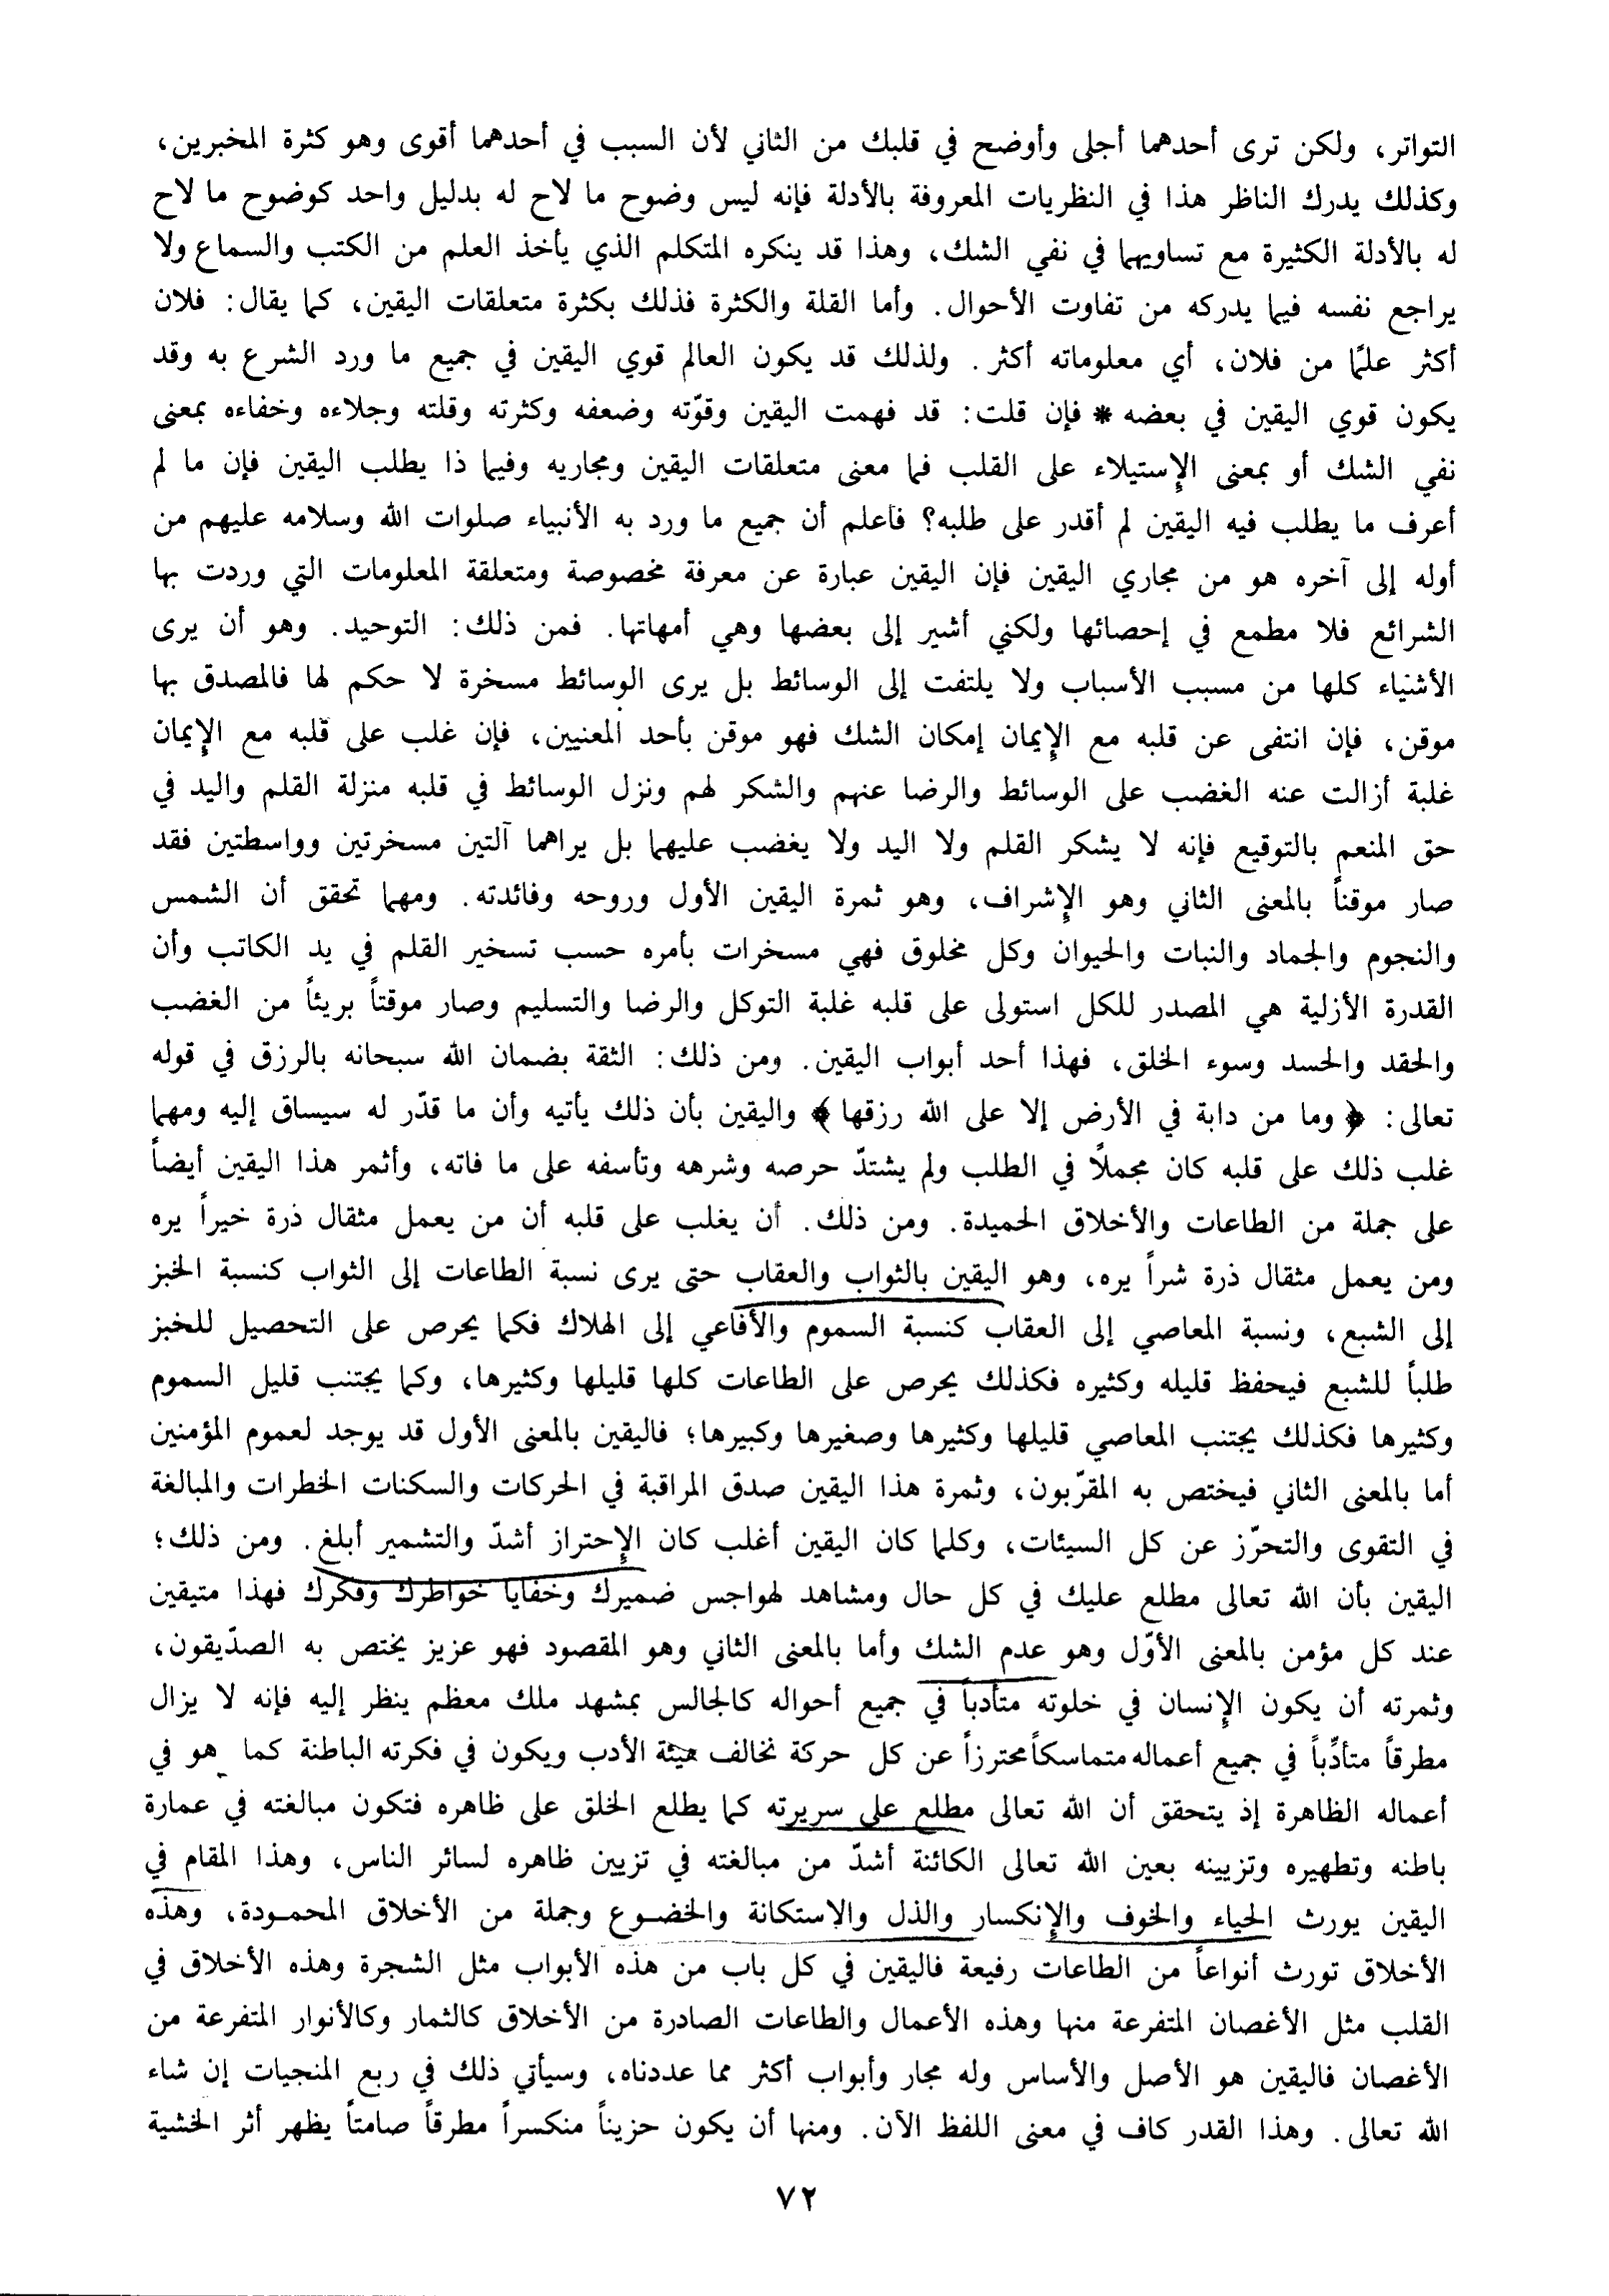 التواتر، ولكن ترى أحدهما أجلى وأوضح في قلبك من الثاني لأن السبب في أحدهما أقوى وهو كثرة المخبرين،
وكذلك يدرك الناظر هذا في النظريات المعروفة بالأدلة فإنه ليس وضوح ما لاح له بدليل واحد كوضوح ما لاح
له بالأدلة الكثيرة مع تساويهما في نفي الشك، وهذا قد ينكره المتكلم الذي يأخذ العلم من الكتب والسماع ولا
يراجع نفسه فيما يدركه من تفاوت الأحوال. وأما القلة والكثرة فذلك بكثرة متعلقات اليقين، كما يقال: فلان
أكثر علمًا من فلان، أي معلوماته أكثر. ولذلك قد يكون العالم قوي اليقين في جميع ما ورد الشرع به وقد
يكون قوي اليقين في بعضه * فإن قلت: قد فهمت اليقين وقوّته وضعفه وكثرته وقلته وجلاءه وخفاءه بمعنى
نفي الشك أو بمعنى الإستيلاء على القلب فما معنى متعلقات اليقين ومجاريه وفيما ذا يطلب اليقين فإن ما لم
أعرف ما يطلب فيه اليقين لم أقدر على طلبه؟ فأعلم أن جميع ما ورد به الأنبياء صلوات الله وسلامه عليهم من
أوله إلى آخره هو من مجاري اليقين فإن اليقين عبارة عن معرفة مخصوصة ومتعلقة المعلومات التي وردت بها
الشرائع فلا مطمع في إحصائها ولكني أشير إلى بعضها وهي أمهاتها. فمن ذلك: التوحيد. وهو أن يرى
الأشياء كلها من مسبب الأسباب ولا يلتفت إلى الوسائط بل يرى الوسائط مسخرة لا حكم لها فالمصدق بها
موقن، فإن انتفى عن قلبه مع الإيمان إمكان الشك فهو موقن بأحد المعنيين، فإن غلب على قلبه مع الإيمان
غلبة أزالت عنه الغضب على الوسائط والرضا عنهم والشكر لهم ونزل الوسائط في قلبه منزلة القلم واليد في
حق المنعم بالتوقيع فإنه لا يشكر القلم ولا اليد ولا يغضب عليهما بل يراهما آلتين مسخرتين وواسطتين فقد
صار موقناً بالمعنى الثاني وهو الإشراف، وهو ثمرة اليقين الأول وروحه وفائدته. ومهما تحقق أن الشمس
والنجوم والجماد والنبات والحيوان وكل مخلوق فهي مسخرات بأمره حسب تسخير القلم في يد الكاتب وأن
القدرة الأزلية هي المصدر للكل استولى على قلبه غلبة التوكل والرضا والتسليم وصار موقتاً بريئاً من الغضب
والحقد والحسد وسوء الخلق، فهذا أحد أبواب اليقين. ومن ذلك: الثقة بضمان الله سبحانه بالرزق في قوله
تعالى: ﴿وما من دابة في الأرض إلا على الله رزقها﴾ واليقين بأن ذلك يأتيه وأن ما قدّر له سيساق إليه ومهما
غلب ذلك على قلبه كان مجملاً في الطلب ولم يشتدّ حرصه وشرهه وتأسفه على ما فاته، وأثمر هذا اليقين أيضاً
على جملة من الطاعات والأخلاق الحميدة. ومن ذلك. أن يغلب على قلبه أن من يعمل مثقال ذرة خيراً يره
ومن يعمل مثقال ذرة شراً يره، وهو اليقين بالثواب والعقاب حتى يرى نسبة الطاعات إلى الثواب كنسبة الخبز
إلى الشبع، ونسبة المعاصي إلى العقاب كنسبة السموم والأفاعي إلى الهلاك فكما يحرص على التحصيل للخبز
طلباً للشبع فيحفظ قليله وكثيره فكذلك يحرص على الطاعات كلها قليلها وكثيرها، وكما يجتنب قليل السموم
وكثيرها فكذلك يجتنب المعاصي قليلها وكثيرها وصغيرها وكبيرها؛ فاليقين بالمعنى الأول قد يوجد لعموم المؤمنين
أما بالمعنى الثاني فيختص به المقرّبون، وثمرة هذا اليقين صدق المراقبة في الحركات والسكنات الخطرات والمبالغة
في التقوى والتحرّز عن كل السيئات، وكلما كان اليقين أغلب كان الإحتراز أشدّ والتشمير أبلغ. ومن ذلك؛
اليقين بأن الله تعالى مطلع عليك في كل حال ومشاهد لهواجس ضميرك وخفايا خواطرك وفكرك فهذا متيقين
عند كل مؤمن بالمعنى الأوّل وهو عدم الشك وأما بالمعنى الثاني وهو المقصود فهو عزيز يختص به الصدّيقون،
وثمرته أن يكون الإنسان في خلوته متأدباً في جميع أحواله كالجالس بمشهد ملك معظم ينظر إليه فإنه لا يزال
مطرقاً متأدِّباً في جميع أعماله متماسكاً محترزاً عن كل حركة تخالف هيئة الأدب ويكون في فكرته الباطنة كما هو في
أعماله الظاهرة إذ يتحقق أن الله تعالى مطلع على سريرته كما يطلع الخلق على ظاهره فتكون مبالغته في عمارة
باطنه وتطهيره وتزيينه بعين الله تعالى الكائنة أشدّ من مبالغته في تزيين ظاهره لسائر الناس، وهذا المقام في
اليقين يورث الحياء والخوف والإنكسار والذل والإستكانة والخضوع وجملة من الأخلاق المحمودة، وهذه
الأخلاق تورث أنواعاً من الطاعات رفيعة فاليقين في كل باب من هذه الأبواب مثل الشجرة وهذه الأخلاق في
القلب مثل الأغصان المتفرعة منها وهذه الأعمال والطاعات الصادرة من الأخلاق كالثمار وكالأنوار المتفرعة من
الأغصان فاليقين هو الأصل والأساس وله مجار وأبواب أكثر مما عددناه، وسيأتي ذلك في ربع المنجيات إن شاء
الله تعالى. وهذا القدر كاف في معنى اللفظ الآن. ومنها أن يكون حزيناً منكسراً مطرقاً صامتاً يظهر أثر الخشية
٧٢